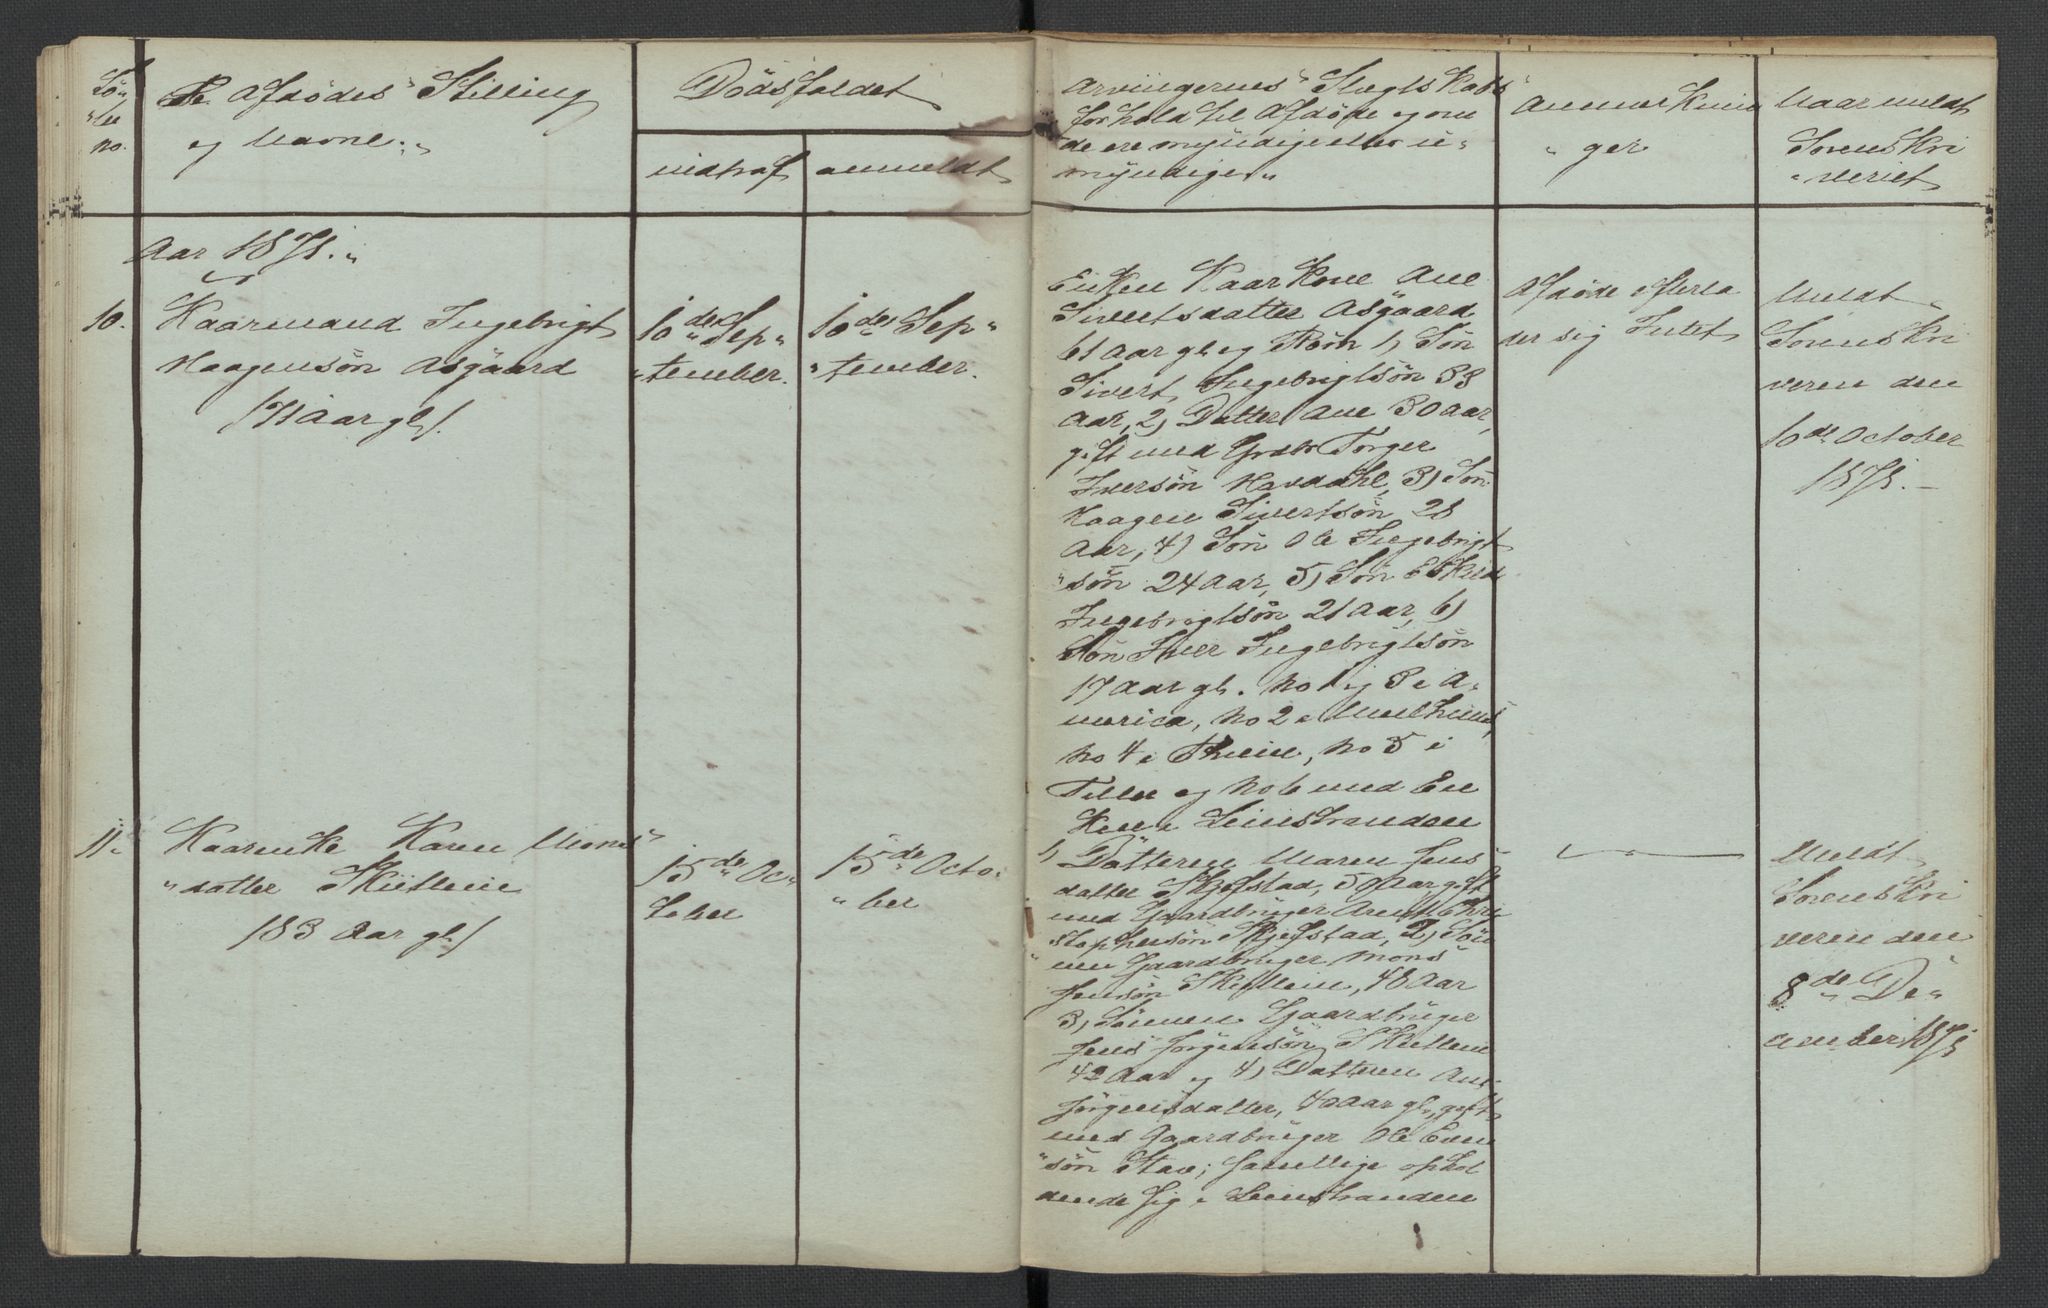 Lö-
"be
no.
De Afdödes Stilling
og Navne."
Dödsfaldet
indtraf
anmeldt
Arvingernes Slægtskabs
forhold til Afdöde og om
de ere myndige eller u-
myndige."
Anmærknin
"ger
Naar meldt
Sorenskri
"veriet
Aar 1871."
10.
Kaarmand Ingebrigt
Haagensön Asgaard
/71 Aar gl/.
10de Sep"
"tember.
10de Sep"
"tember.
Enken Kaarkone Ane
Sivertsdatter Asgaard
61 Aar gl. og Börn 1, Sön
Sivert Ingebrigtsön 33
Aar, 2, Datter Ane 30 Aar,
gift med Grdbr Torger
Iversön Havdahl, 3) Sön
Haagen Sivertsön 28
Aar, 4) Sön Ole Ingebrigt
"sön 24 Aar, 5) Sön Eskild
Ingebrigtsön 21 Aar, 6)
Sön Iver Ingebrigtsön
17 Aar gl. No 1 og 3 i A-
merica, No 2 i Meelhuus,
No 4 i, No 5 i
Tiller og No 6 med En
ken i Leinstranden
Afdöde efterla
der sig Intet
Meldt
Sorenskri
veren den
10de October
1871.-
11.
Kaarenke Karen Mons"
"datter Skjetlein
/83 Aar gl/
15de Oc"
tober
15de Octo"
"ber
1) Datteren Maren Jens
datter Skjefstad, 50 Aar gift
med Gaardbruger Arent Chri
stophersön Skjefstad, 2) Sön
nen Gaardbruger Mons
Jensön Skjetlein, 48 Aar
3, Sönnen Gaardbruger
Jens Jörgensön Skjetlein
42 Aar og 4) Datteren Ane
Jörgensdatter, 40 Aar gl., gift
med Gaardbruger Ole Even
"sön Stav; samtlige ophol
dende sig i Leinstranden
Meldt
Sorenskri
veren den
8de De"
cember 1871